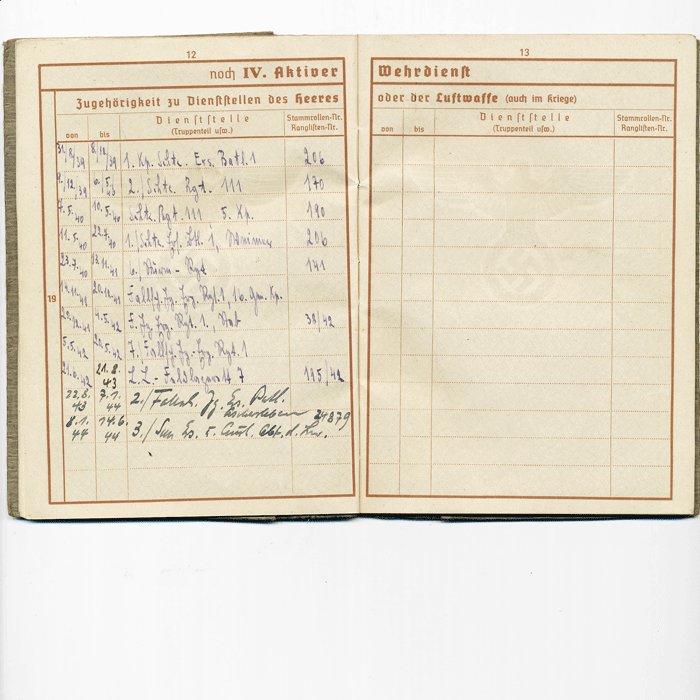 12
noch IV. Aktiver
Zugehörigkeit zu Dienststellen des Heeres
von bis Dienststelle (Truppenteil usw.) Stammrollen-Nr. Ranglisten-Nr.
31./8/39 8./12/39 1. Kp. Schtz. Ers. Batl. 1 206
9./12./39 6./5./40 2./ Schtz. Rgt. 111 170
7.5.40 10.5.40 Schtz. Rgt. 111 5. Kp. 190
11.5.40 22.7.40 1./ Schtz. 1, Weimar 206
23.7.40 13.11.41 6./ Sturm - Rgt 141
14.11.41 Fallsch. Jg. Rgt. 1, Kp.
19
1.5.42 Rgt. 1., Stab 38/42
5.5.42 20.5.42 7./ Fallsch. Jg. Rgt. 1
21.6.42 21.8.43 L.L. - Feldlazarett 7 195/42
22.8.43 7.1.44 2./ Fallsch. Jg. Ers. Batl. Aschersleben 24879
8.1.44 14.6.44 3./ San. d. Lw.
13
Wehrdienst
oder der Luftwaffe (auch im Kriege)
von bis Dienststelle (Truppenteil usw.) Stammrollen-Nr. Ranglisten-Nr.